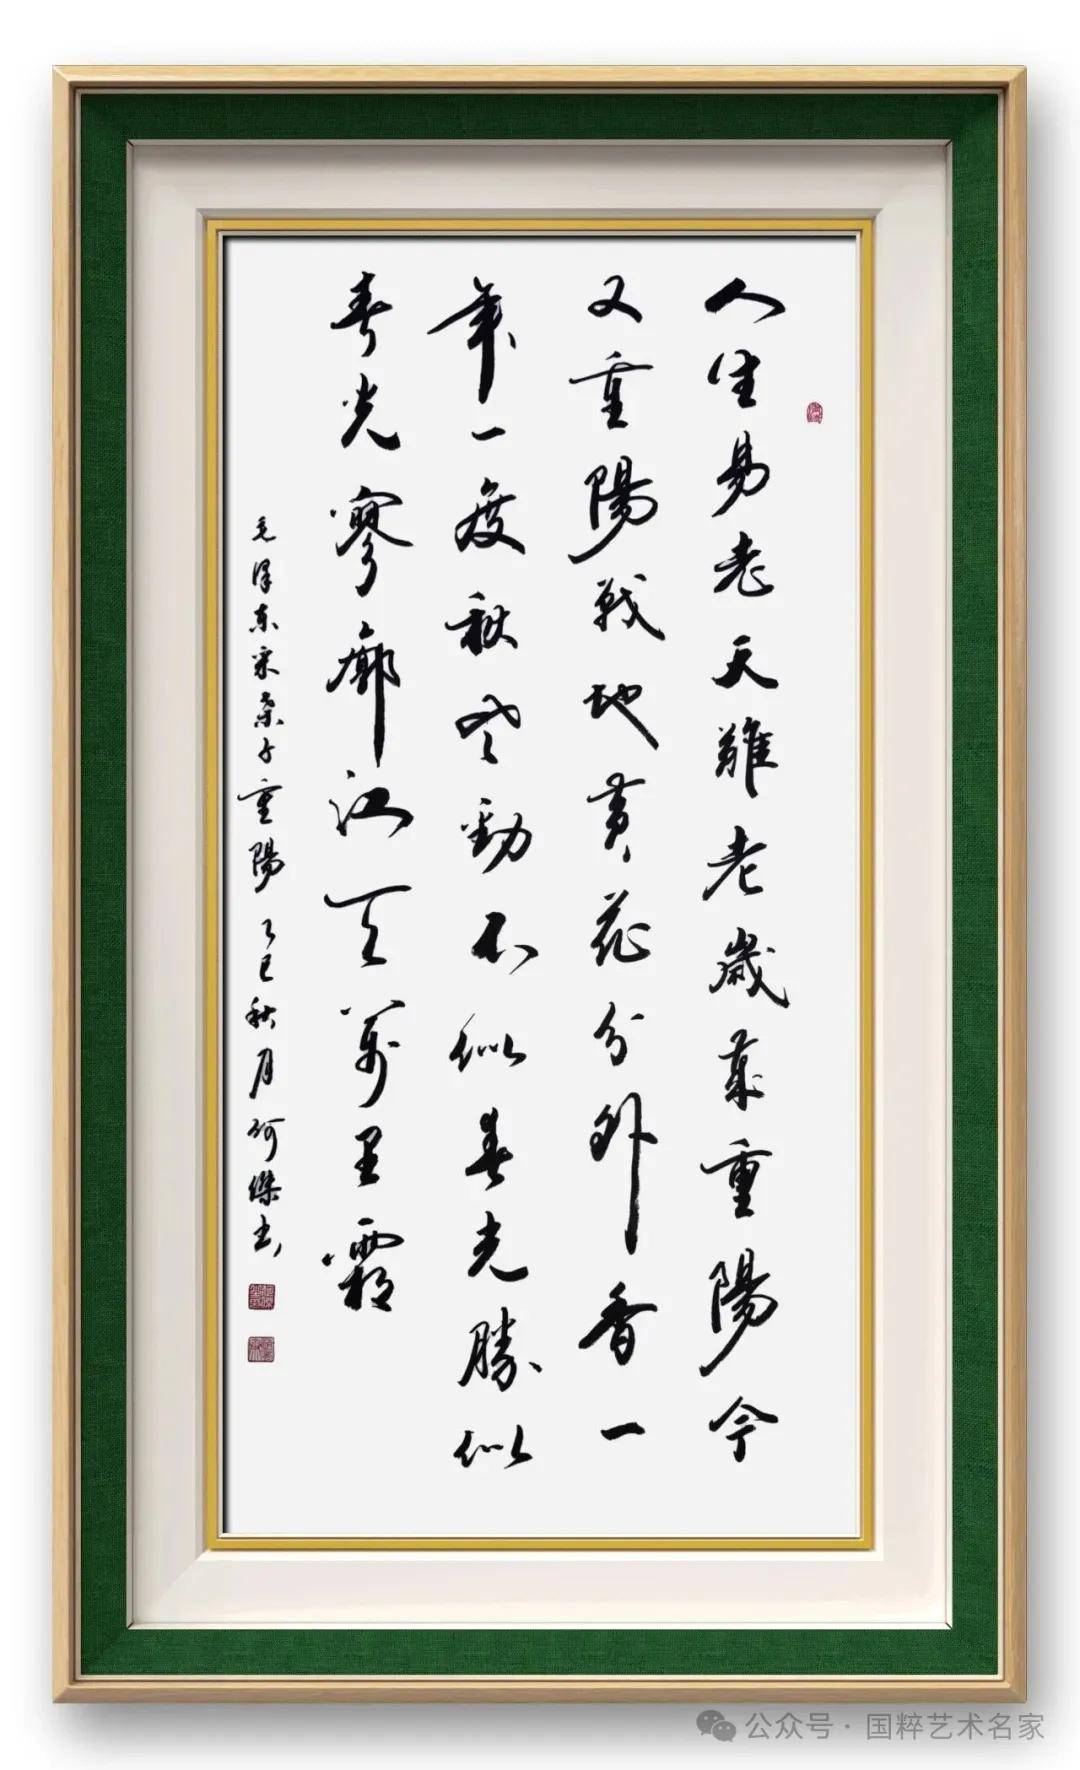 人生易老天難老歲歲重陽今
又重陽戰地黃花分外香一
年一度秋風勁不似春光勝似
春光寥廓江天萬里霜
毛泽东采桑子重陽 乙巳秋月何傑书
公众号 · 国粹艺术名家